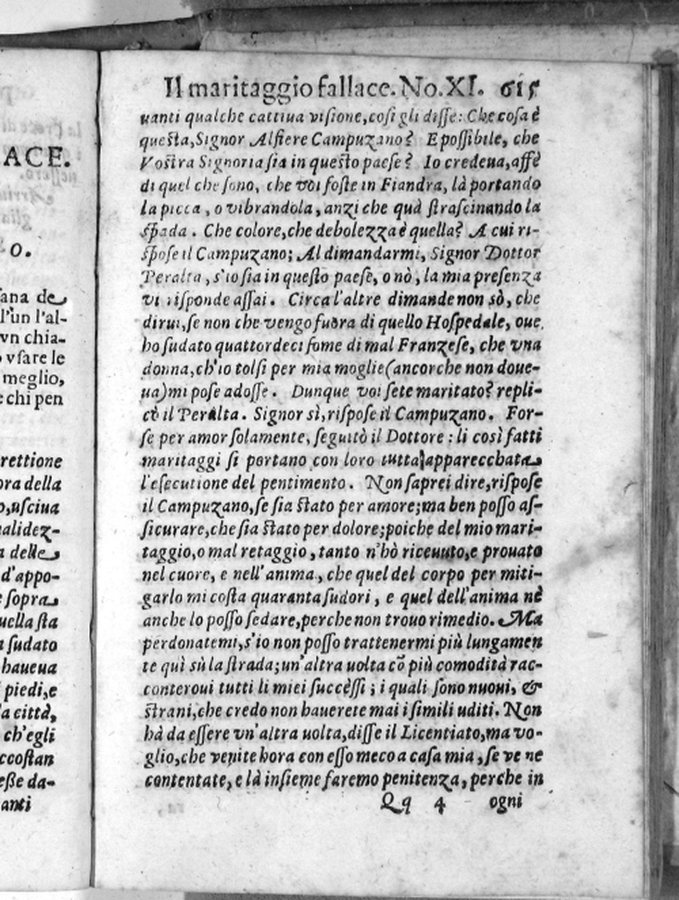 ACE.
o.
sana de
l'un l'al-
vn chia-
o vsare le
meglio,
e chi pen
rettione
ora della
o,usciua
ualidez-
a delle
d'appo-
e sopra
uella sta
n sudato
baueua
i piedi,e
la città,
ch'egli
ccostan
eße da-
anti
Il maritaggio fallace. No. XI. 615
uanti qualche cattiua visione,così gli disse: Che cosa è
questa,Signor Alfiere Campuzano? E possibile, che
Vostra Signoria sia in questo paese? Io credeua,affè
di quel che sono, che voi foste in Fiandra, là portando
la picca, o vibrandola, anzi che quà strascinando la
spada. Che colore,che debolezza è quella? A cui ri-
spose il Campuzano; Al dimandarmi, Signor Dottor
Peralta, s'io sia in questo paese, o nò, la mia presenza
vi risponde assai. Circa l'altre dimande non sò, che
dirui,se non che vengo fuora di quello Hospedale, oue
ho sudato quattordeci some di mal Franzese, che vna
donna,ch'io tolsi per mia moglie(ancorche non doue-
ua)mi pose adosse. Dunque voi sete maritato? repli-
cò il Peralta. Signor sì,rispose il Campuzano. For-
se per amor solamente, seguitò il Dottore: li così fatti
maritaggi si portano con loro tutta apparecchata
l'esecutione del pentimento. Non saprei dire,rispose
il Campuzano,se sia stato per amore;ma ben posso as-
sicurare,che sia stato per dolore;poiche del mio mari-
taggio,o mal retaggio, tanto n'hò riceuuto,e prouato
nel cuore, e nell'anima, che quel del corpo per miti-
garlo mi costa quaranta sudori, e quel dell'anima nè
anche lo posso sedare,perche non trouo rimedio. Ma
perdonatemi,s'io non posso trattenermi più lungamen
te quì sù la strada;un'altra uolta cõ più comodità rac-
conteroui tutti li miei succèssi; i quali sono nuoui, &
strani,che credo non hauerete mai i simili uditi. Non
hà da essere vn'altra uolta,disse il Licentiato,ma vo-
glio,che venite hora con esso meco a casa mia, se ve ne
contentate, e là insieme faremo penitenza, perche in
Qq 4 ogni